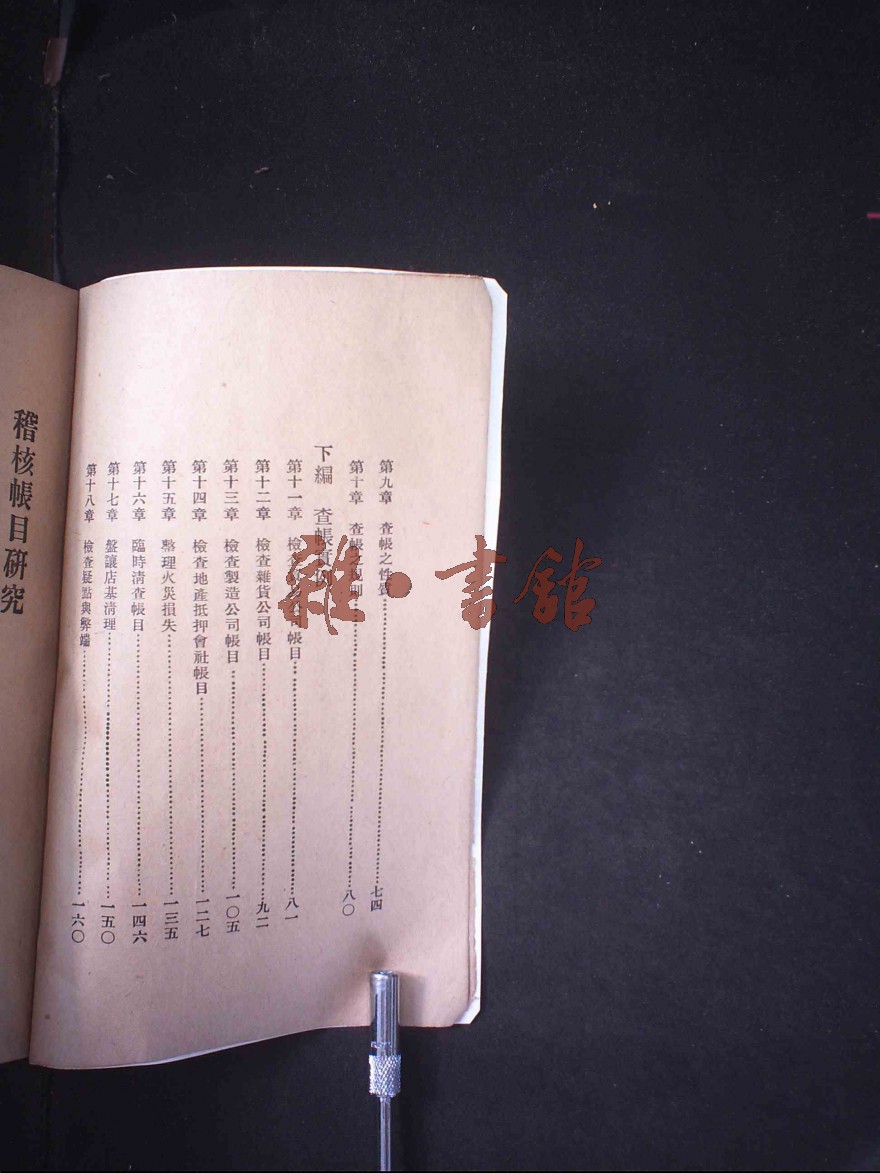 第九章 查帳之性質 七四
第十章 查帳之規則 八〇
下編 查帳實例
第十一章 檢查 公司帳目 八一
第十二章 檢查雜貨公司帳目 九二
第十三章 檢查製造公司帳目 一〇五
第十四章 檢查地產抵押會社帳目 一二七
第十五章 整理火災損失 一三五
第十六章 臨時清查帳目 一四六
第十七章 盤讓店基清理 一五〇
第十八章 檢查疑點與弊端 一六〇
稽核帳目研究
雜·書館